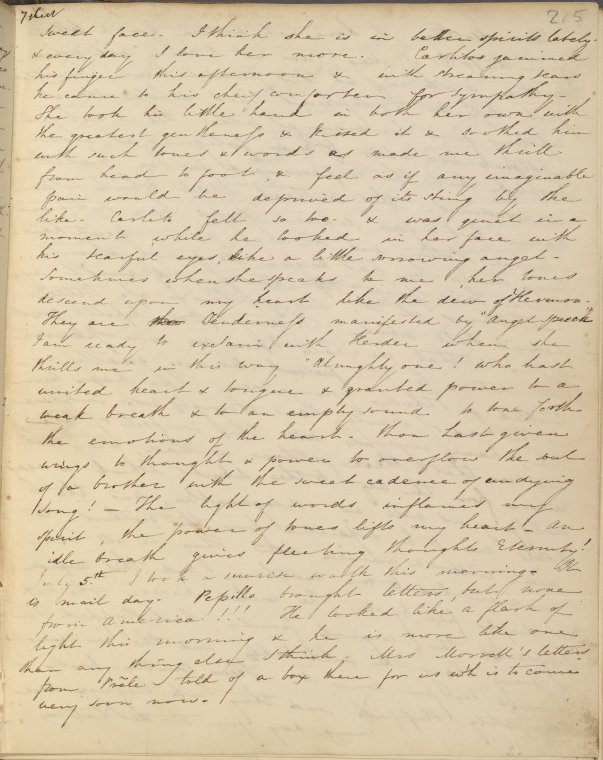 7 sheet
215
sweet face. I think she is in better spirits lately.
& every day I love her more. Carlitos jammed
his finger this afternoon & with streaming tears
he came to his chief comforter for sympathy.
She took his little hand in both her own with
the greatest gentleness & kissed it & soothed him
with such tones & words as made me thrill
from head to foot, & feel as if any imaginable
pain would be deprived of its sting by the
like. Carlito felt so too. & was quiet in a
moment while he looked in her face with
his tearful eyes, like a little sorrowing angel.
Sometimes when she speaks to me her tones
descend upon my heart like the dew of Hermon.
They are tenderness manifested by "Angel speech"
I am ready to exclaim with Herder when she
thrills me in this way "Almighty one! who hast
united heart & tongue & granted power to a
weak breath & to an empty sound to tone forth
the emotions of the heart. thou hast given
wings to thought & power to overflow the soul
of a brother with the sweet cadence of undying
song! — The light of words inflames my
spirit, the power of tones lifts my heart. An
idle breath gives fleeting thoughts Eternity!
July 5.th I took a sunrise walk this morning. It
is mail day. Pepillo brought letters, but none
from America!!! He looked like a flash of
light this morning & he is more like one
than any thing else I think. Mrs Morrell's letters
from told of a box there for us wh is to come
very soon now.